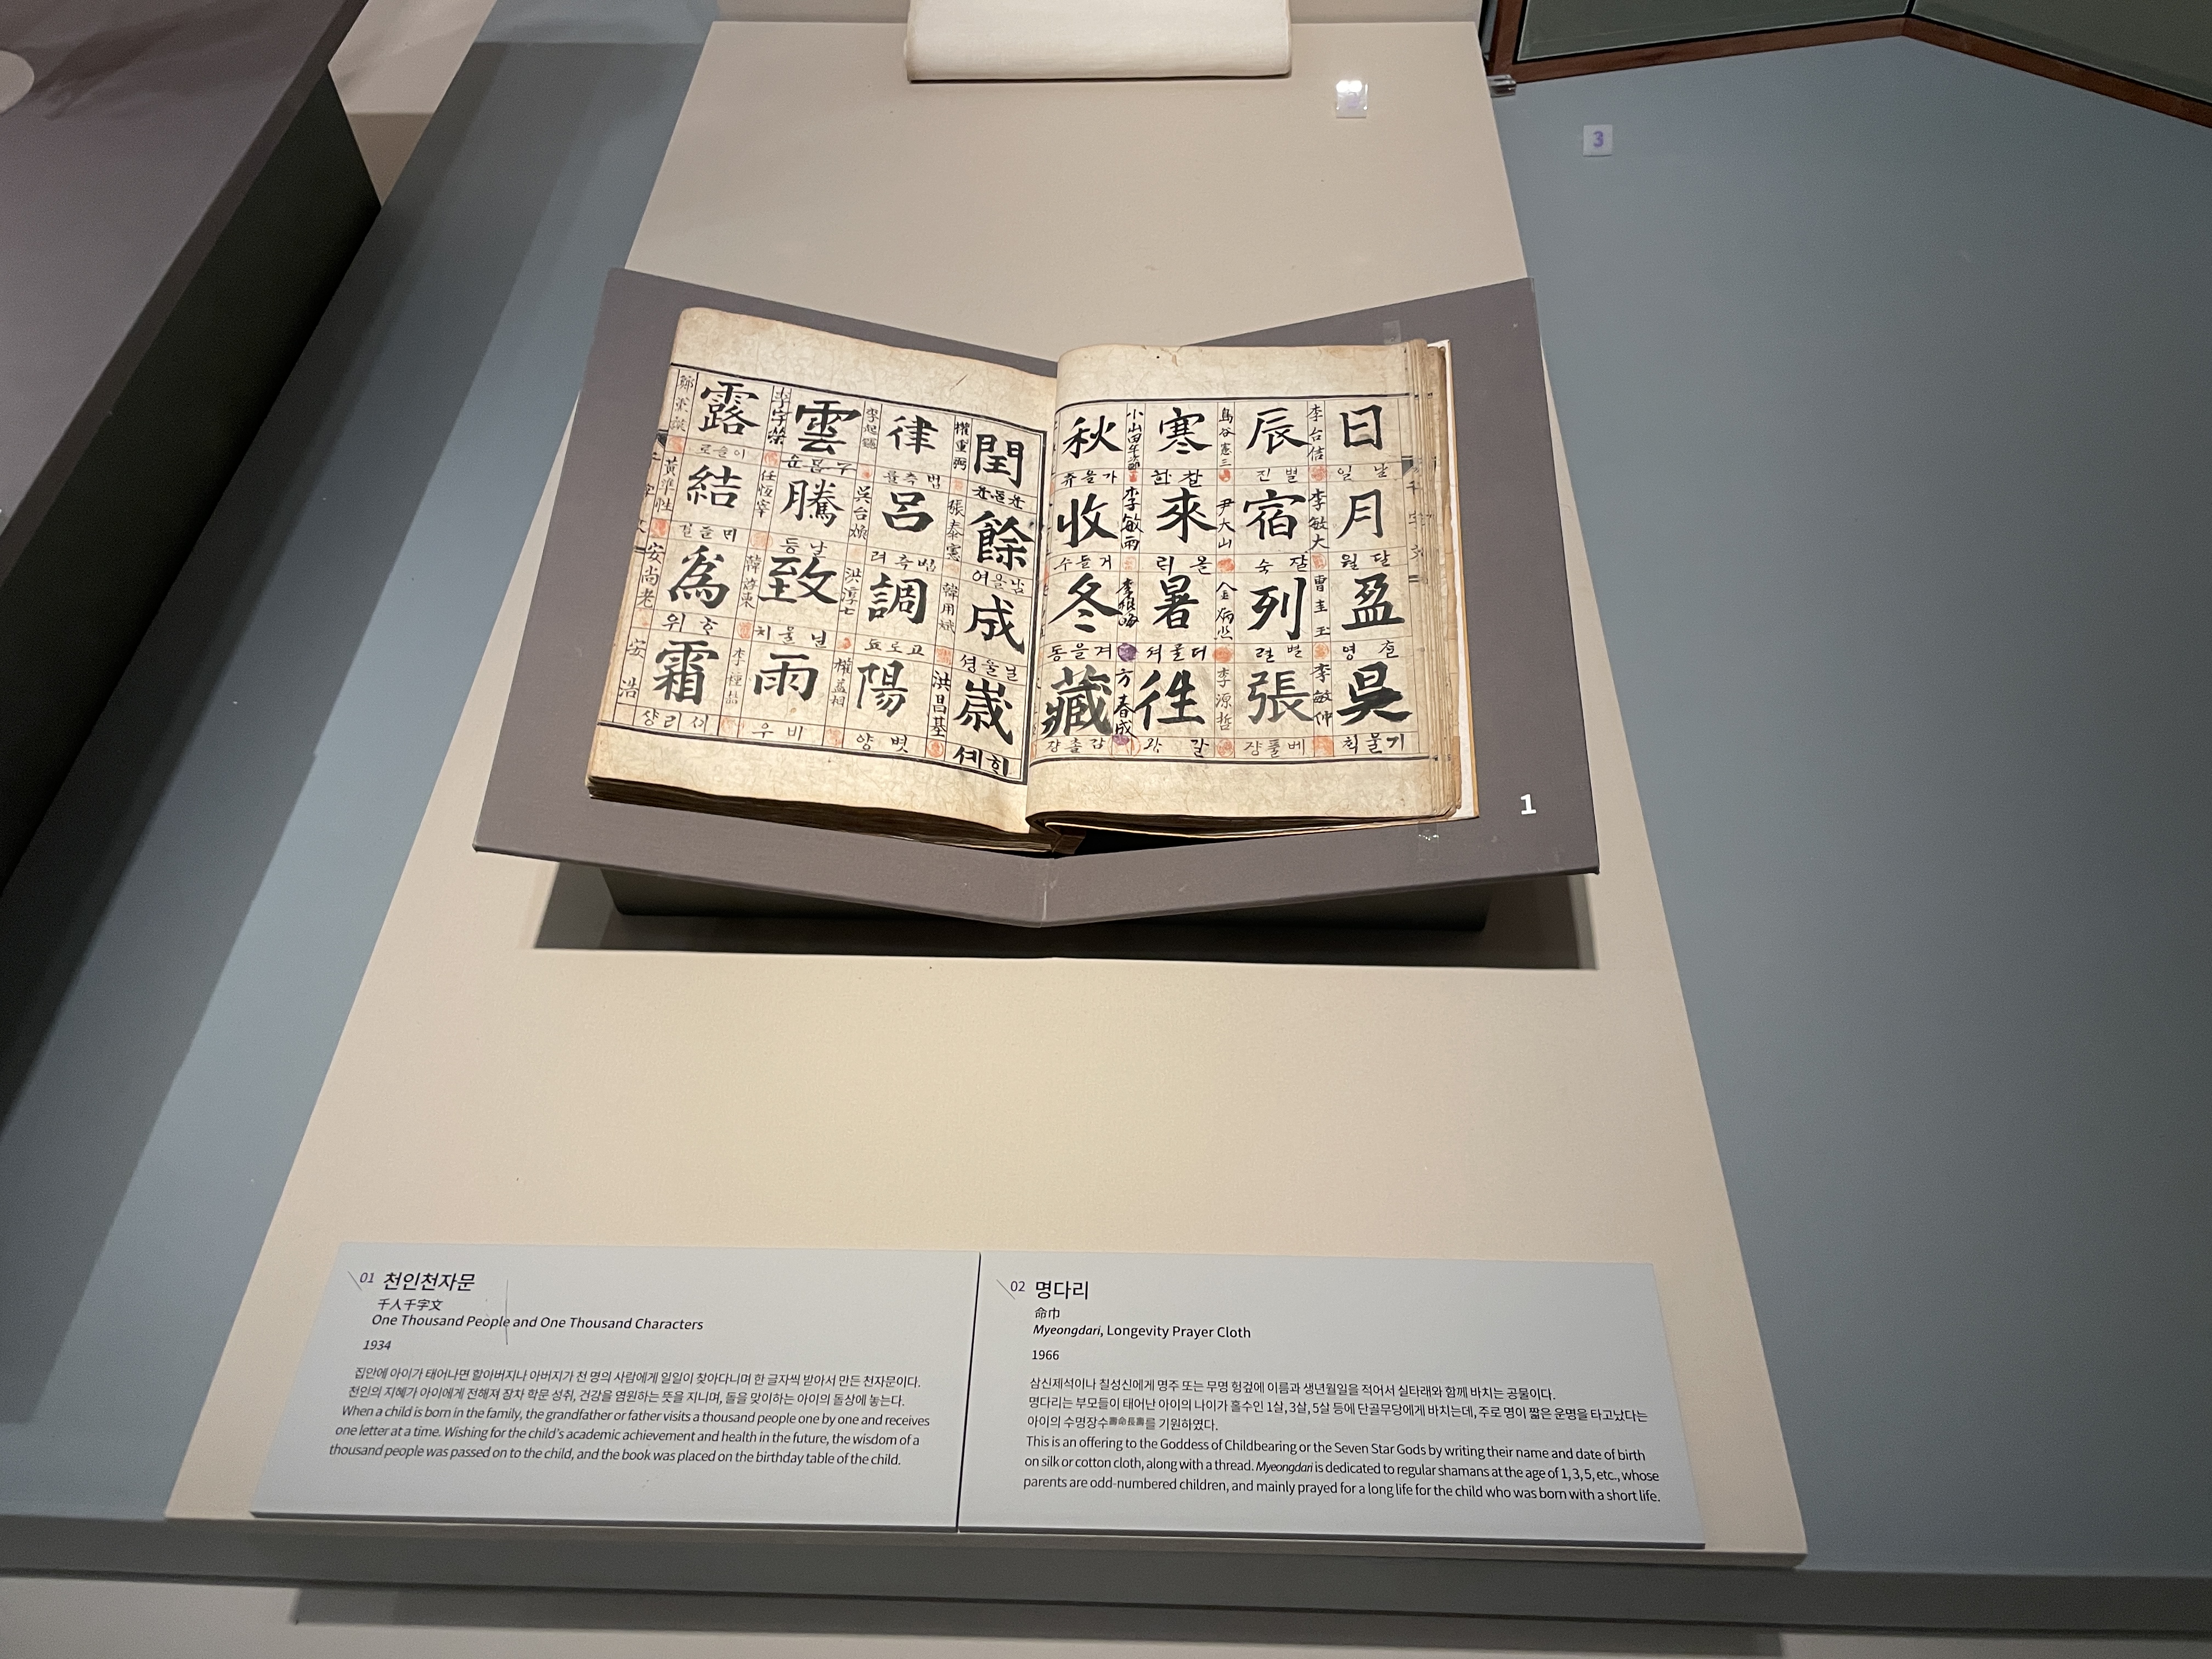 日
날 일
月
달 월
盈
昃
기물 칙
李台信
李敏大
辰
별 진
宿
잘 숙
列
벌 렬
張
베풀 쟝
鳥谷憲三
尹大山
李源哲
寒
찰 한
來
올 릭
暑
더울 셔
往
갈 왕
李敏雨
方春成
秋
가을 츄
收
거둘 수
冬
겨을 동
藏
감츌 장
閏
餘
남을 여
成
歲
權重弼
張泰憲
韓用斌
洪昌基
律
법측 률
呂
법측 려
調
고로 됴
陽
볏 양
吳台煥
雲
구름 운
騰
날 등
致
닐울 치
雨
비 우
露
이슬 로
結
爲
霜
셔리 상
安尚老
安浩
1
3
01 천인천자문
千人千字文
One Thousand People and One Thousand Characters
1934
집안에 아이가 태어나면 할아버지나 아버지가 천 명의 사람에게 일일이 찾아다니며 한 글자씩 받아서 만든 천자문이다.
천인의 지혜가 아이에게 전해져 장차 학문 성취, 건강을 염원하는 뜻을 지니며, 돌을 맞이하는 아이의 돌상에 놓는다.
When a child is born in the family, the grandfather or father visits a thousand people one by one and receives
one letter at a time. Wishing for the child's academic achievement and health in the future, the wisdom of a
thousand people was passed on to the child, and the book was placed on the birthday table of the child.
02 명다리
命巾
Myeongdari, Longevity Prayer Cloth
1966
삼신제석이나 칠성신에게 명주 또는 무명 헝겊에 이름과 생년월일을 적어서 실타래와 함께 바치는 공물이다.
명다리는 부모들이 태어난 아이의 나이가 홀수인 1살, 3살, 5살 등에 단골무당에게 바치는데, 주로 명이 짧은 운명을 타고났다는
아이의 수명장수壽命長壽를 기원하였다.
This is an offering to the Goddess of Childbearing or the Seven Star Gods by writing their name and date of birth
on silk or cotton cloth, along with a thread. Myeongdari is dedicated to regular shamans at the age of 1, 3, 5, etc., whose
parents are odd-numbered children, and mainly prayed for a long life for the child who was born with a short life.